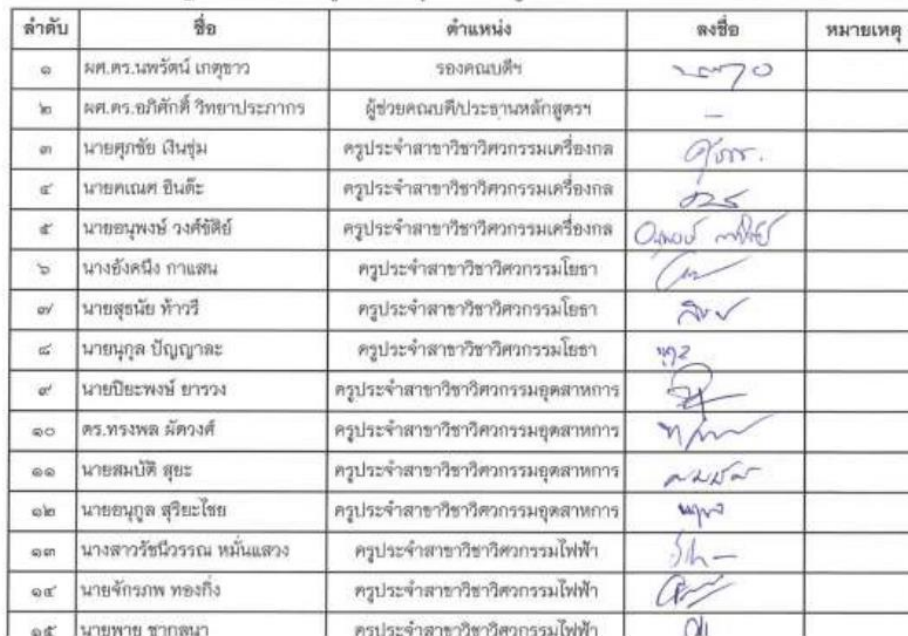 ลำดับ ชื่อ ตำแหน่ง ลงชื่อ หมายเหตุ
๑ ผศ.ดร.นพรัตน์ เกตุขาว รองคณบดีฯ
๒ ผศ.ดร.อภิศักดิ์ วิทยาประภากร ผู้ช่วยคณบดี/ประธานหลักสูตรฯ -
๓ นายศุภชัย เงินชุ่ม ครูประจำสาขาวิชาวิศวกรรมเครื่องกล
๔ นายคเณศ อินต๊ะ ครูประจำสาขาวิชาวิศวกรรมเครื่องกล
๕ นายอนุพงษ์ วงศ์ขัติย์ ครูประจำสาขาวิชาวิศวกรรมเครื่องกล
๖ นางอังคนึง กาแสน ครูประจำสาขาวิชาวิศวกรรมโยธา
๗ นายสุธนัย ท้าววรี ครูประจำสาขาวิชาวิศวกรรมโยธา
๘ นายนุกูล ปัญญาละ ครูประจำสาขาวิชาวิศวกรรมโยธา
๙ นายปิยะพงษ์ ยารวง ครูประจำสาขาวิชาวิศวกรรมอุตสาหการ
๑๐ ดร.ทรงพล ผัดวงศ์ ครูประจำสาขาวิชาวิศวกรรมอุตสาหการ
๑๑ นายสมบัติ สุยะ ครูประจำสาขาวิชาวิศวกรรมอุตสาหการ
๑๒ นายอนุกูล สุริยะไชย ครูประจำสาขาวิชาวิศวกรรมอุตสาหการ
๑๓ นางสาวรัชนีวรรณ หมั่นแสวง ครูประจำสาขาวิชาวิศวกรรมไฟฟ้า
๑๔ นายจักรภพ ทองกิ่ง ครูประจำสาขาวิชาวิศวกรรมไฟฟ้า
๑๕ นายพาย ชากลนา ครูประจำสาขาวิชาวิศวกรรมไฟฟ้า